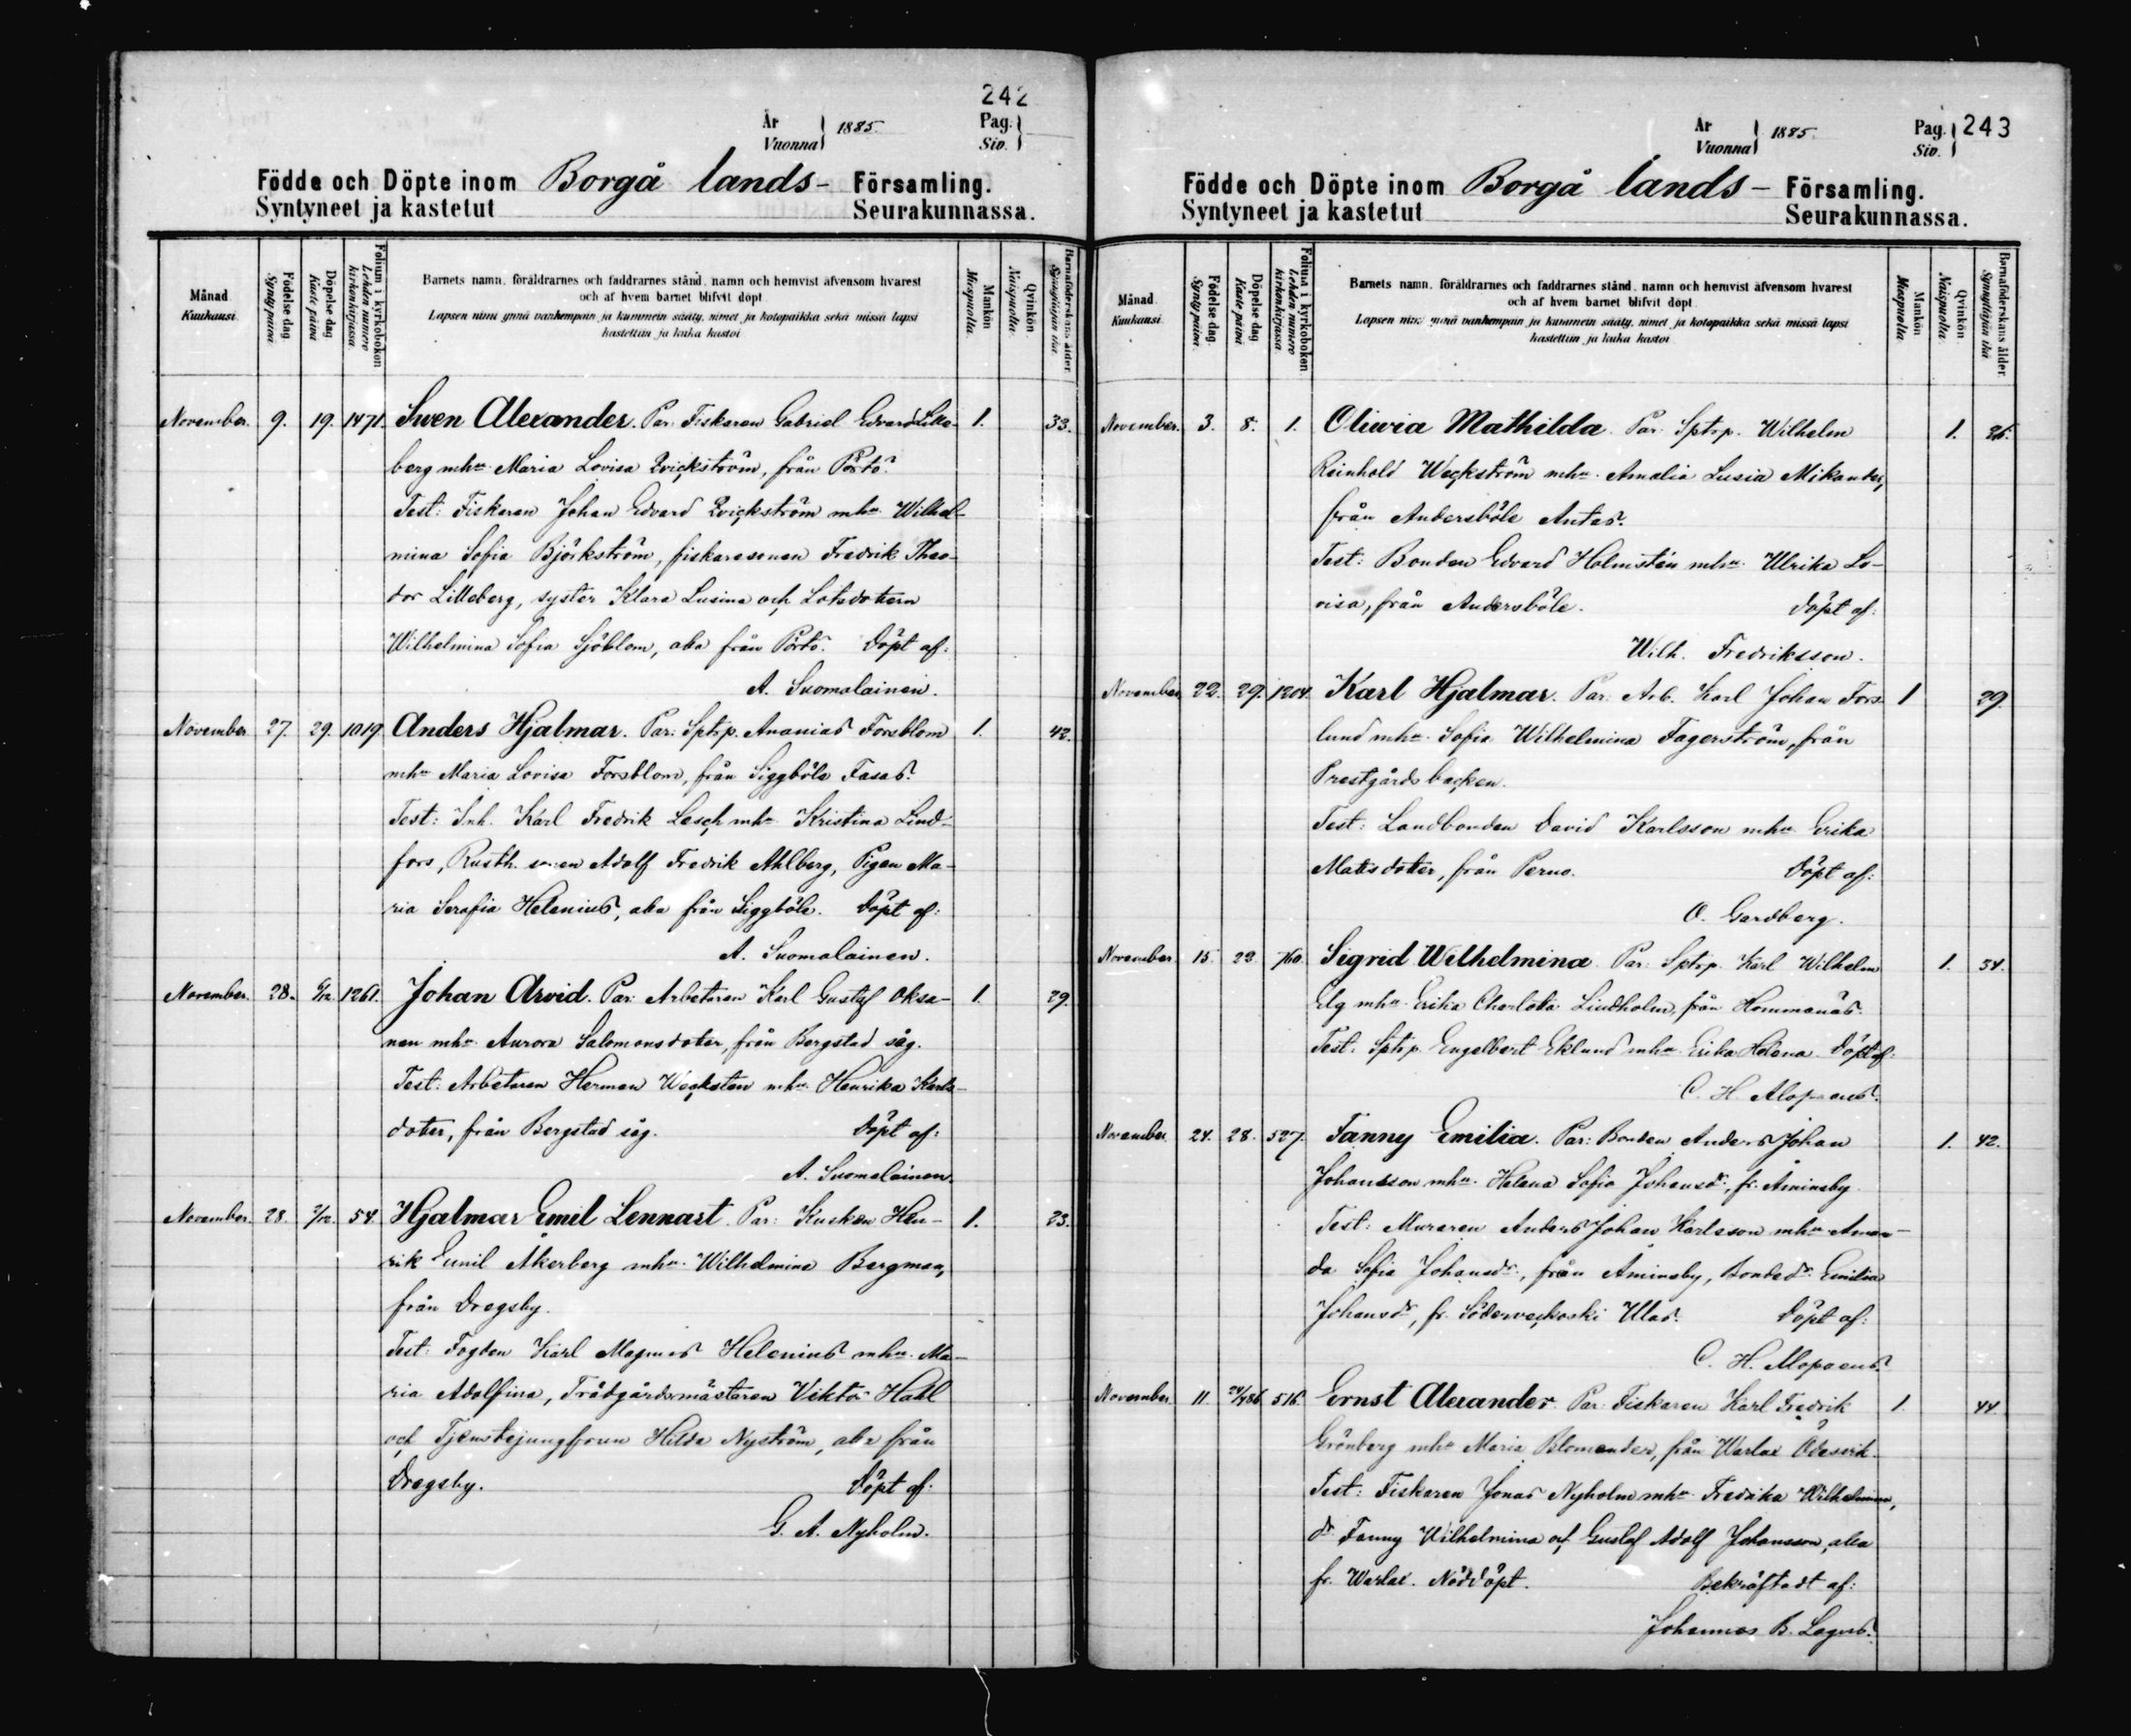 242
År
Vuonna
1885.
Pag.
Siv.
Födde och Döpte inom Borgå lands- Församling.
Syntyneet ja kastetut Seurakunnassa.
Månad.
Kuukausi.
Födelse dag.
Syntypäivä.
Döpelse dag.
Kastepäivä.
Folium i kyrkoboken
Lehden numero kirkonkirjassa.
Barnets namn, föräldrarnes och faddrarnes stånd, namn och hemvist äfvensom hvarest
och af hvem barnet blifvit döpt.
Lapsen nimi ynnä vanhempain ja kummein sääty, nimet ja kotopaikka sekä missä lapsi
kastettiin ja kuka kastoi.
Mankön
Miespuolta.
Qvinkön
Naispuolta.
Barnaföderskans ålder.
Synnyttäjän ikä.
November. 9. 19. 1471. Swen Alexander. Par: Fiskaren Gabriel Edvard Lille- 1. 33.
berg mhu Maria Lovisa Qvickström, från Pörtö.
Test: Fiskaren Johan Edvard Qvickström mhu Wilhel-
mina Sofia Björkström, fiskaresonen Fredrik Theo-
dor Lilleberg, syster Klara Lusina och Lotsdottern
Wilhelmina Sofia Sjöblom, alla från Pörtö. Döpt af:
A. Suomalainen.
November. 27. 29. 1019. Anders Hjalmar. Par: Sptrp. Ananias Forsblom 1. 42.
mhu Maria Lovisa Forsblom, från Siggböle Fasas.
Test: Inh. Karl Fredrik Lesch mhu Kristina Lind-
fors, Rusth. sonen Adolf Fredrik Ahlberg, Pigan Ma-
ria Serafia Helenius, alla från Siggböle. Döpt af:
A. Suomalainen.
November. 28. 6/12. 1261. Johan Arvid. Par: Arbetaren Karl Gustaf Oksa- 1. 29.
nen mhu Aurora Salomonsdotter, från Borgstad såg.
Test: Arbetaren Herman Wecksten mhu Henrika Karls-
dotter, från Borgstad såg. Döpt af:
A. Suomalainen.
November. 28. 54. Hjalmar Emil Lennart. Par: Kusken Hen- 1. 23.
rik Emil Åkerberg mhu Wilhelmina Bergman,
från Dregsby.
Test: Fogden Karl Magnus Helenius mhu Ma-
ria Adolfina, Trädgårdsmästaren Viktor Hall
och Tjenstejungfrun Hilda Nyström, alla från
Dregsby. Döpt af:
G. A. Nyholm.
År
Vuonna
1885.
Pag.
Siv.
243
Födde och Döpte inom Borgå lands- Församling.
Syntyneet ja kastetut Seurakunnassa.
Månad.
Kuukausi.
Födelse dag.
Syntypäivä.
Döpelse dag.
Kastepäivä.
Folium i kyrkoboken
Lehden numero kirkonkirjassa.
Barnets namn, föräldrarnes och faddrarnes stånd, namn och hemvist äfvensom hvarest
och af hvem barnet blifvit döpt.
Lapsen nimi ynnä vanhempain ja kummein sääty, nimet ja kotopaikka sekä missä lapsi
kastettiin ja kuka kastoi.
Mankön
Miespuolta.
Qvinkön
Naispuolta.
Barnaföderskans ålder.
Synnyttäjän ikä.
November. 3. 8. 1. Oliwia Mathilda. Par: Sptrp. Wilhelm 1. 26.
Reinhold Weckström mhu Amalia Lusia Mikander,
från Andersböle Antas.
Test: Bonden Edvard Holmstén mhu Ulrika Lo-
visa, från Andersböle. Döpt af:
Wilh. Fredriksson.
November. 22. 29. 1204. Karl Hjalmar. Par: Arb. Karl Johan Fors- 1 29.
lund mhu Sofia Wilhelmina Fagerström, från
Prestgårdsbacken.
Test: Landbonden David Karlsson mhu Erika
Matsdotter, från Perno. Döpt af:
O. Gardberg.
November. 15. 22. 760. Sigrid Wilhelmina. Par: Sptrp. Karl Wilhelm 1. 34.
Elg mhu Erika Charlotta Lindholm, från Hommanäs.
Test: Sptrp. Engelbert Eklund mhu Erika Helena. Döpt af:
C. H. Alopaeus.
November. 24. 28. 527. Fanny Emilia. Par: Bonden Anders Johan 1. 42.
Johansson mhu Helena Sofia Johansdr, fr. Åminsby.
Test: Muraren Anders Johan Karlsson mhu Aman-
da Sofia Johansdr, från Åminsby, Bondedr Emilia
Johansdr, fr. Söderveckoski Ulas. Döpt af:
C. H. Alopaeus.
November. 11. 516. Ernst Alexander. Par: Fiskaren Karl Fredrik 1. 44.
Grönberg mhu Maria Blomander, från Warlax
Test: Fiskaren Jonas Nyholm mhu Fredrika Wilhelmina,
dr Fanny Wilhelmina och Gustaf Adolf Johansson, alla
fr. Warlax. Nöddöpt. Bekräftadt af:
Johannes B. Lagus.